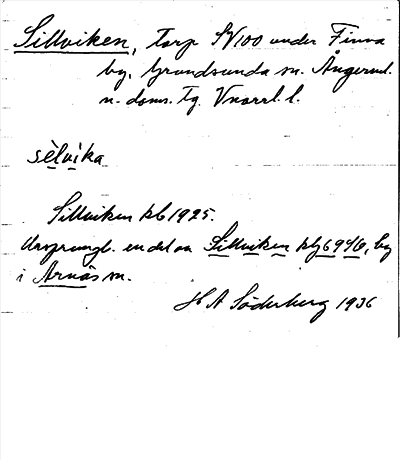 Sillviken, torp S1/100 under Finna
by, Grundsunda sn. Ångerml.
n. doms. tg. Vnorrl. l.
sèlvika
Sillviken kb 1925.
Ursprungl. en del av Sillviken kbg 6946, by
i Arnäs sn.
H A Söderberg 1936